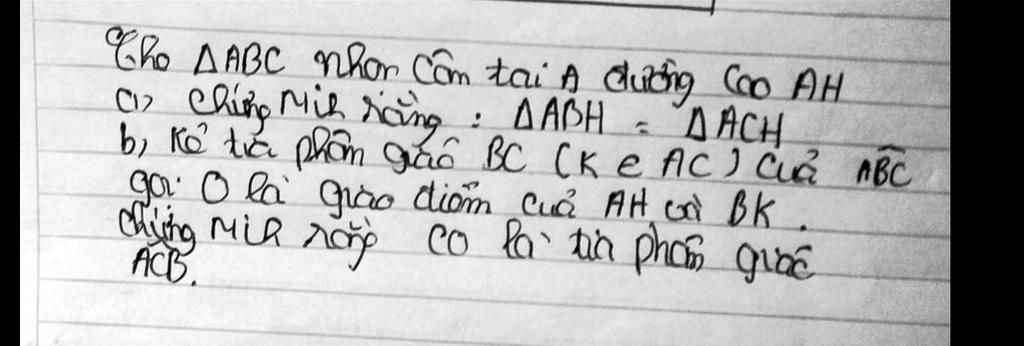 Cho ΔABC nhọn cân tại A đường cao AH
a) Chứng Minh rằng : ΔABH = ΔACH
b, Kẻ tia phân giác BC (K e AC) Của ABC
gọi O là giao điểm của AH và BK.
Chứng Minh rằng CO là tia phân giác
ACB.